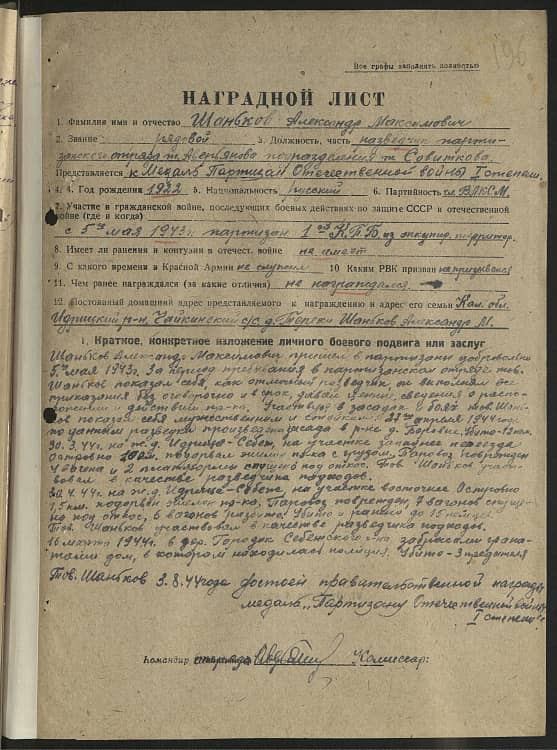 196
Все графы заполнять полностью
НАГРАДНОЙ ЛИСТ
1. Фамилия имя и отчество Шаньков Александр Максимович
2. Звание рядовой 3. Должность, часть разведчик парти-
занского отряда т. подразделения т.
Представляется к Медаль Партизан Отечественной войны I степени
4. Год рождения 1922 5. Национальность русский 6. Партийность чл. ВЛКСМ.
7. Участие в гражданской войне, последующих боевых действиях по защите СССР и отечественной
войне (где и когда)
с 5го мая 1943г. партизан 1ой К.П.Б. из оккупир. территор.
8. Имеет ли ранения и контузии в отечест. войне не имеет
9. С какого времени в Красной Армии не служил 10 Каким РВК призван не призывался
11. Чем ранее награждался (за какие отличия) не награждался.
12. Постоянный домашний адрес представляемого к награждению и адрес его семьи Кал. обл.
Идрицкий р-н, Чайкинский с/с д. Шаньков Александр М.
1. Краткое, конкретное изложение личного боевого подвига или заслуг
Шаньков Александр Максимович пришел в партизаны добровольно
5го мая 1943г. За период пребывания в партизанском отряде тов.
Шаньков показал себя, как отличный разведчик он выполнял все
приказания без оговорочно и в срок, давал ценные сведения о распо-
ложении и действии пр-ка. Участвуя в засадах и боях тов. Шань-
ков показал себя мужественным и стойким. апреля 1944 года
по данным разведки произведена засада в р-не д.
30.3.44г. на ж.д. Идрица-Себеж, на участке западнее разъезда
подорвал эшелон пр-ка с грузом. Паровоз поврежден
4 вагона и 2 платформы спущено под откос. Тов. Шаньков участ-
вовал в качестве разведчика подходов.
.4.44г. на ж.д. Идрица-Себеж, на участке восточнее
1,5км. подорвал эшелон пр-ка. Паровоз поврежден, 7 вагонов спуще-
но под откос, 6 вагонов разбито. Убито и ранено до 15 немцев.
Тов. Шаньков участвовал в качестве разведчика подходов.
16 марта 1944г. в дер. Городок Себежского р-на забросали грана-
тами дом, в котором находилась полиция. Убито - 3 предателя
Тов. Шаньков 3.8.44 года достоин правительственной награды
медаль "Партизану Отечественной войны
I степени"
Командир Комиссар: